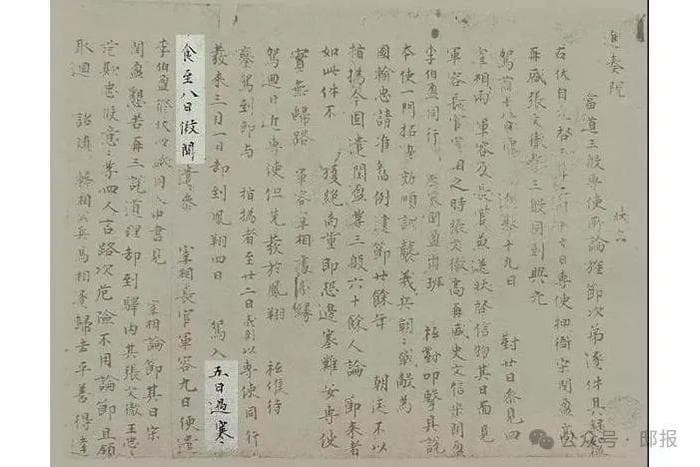 進奏院　狀上
當道三般專使所論旌節次第逐件具錄如後
右伏自光啟三年二月十七日專使押衙宋閏盈高
再盛張文徹等三般同到興元
駕前十八日使進奉十九日對廿日參見四
宰相兩軍容及長官兼送狀啟信物其日面見
軍容長官宰相之時張文徹高再盛史文信宋閏盈
李伯盈同行宋閏盈出班祗對叩擊具說
本使一門拓邊效順訓襲義兵朝朝戰敵為
國輸忠請准舊例建節廿餘年朝廷不以
指撝今因遣閏盈等三般六十餘人論節來者
如此件不獲絕商量即恐邊塞難安專使
實無歸路軍容宰相處分緣
駕迴日近專使但先發於鳳翔祗候待
鑾駕到即與指撝者至廿二日夷則以專使同行
發來三月一日却到鳳翔四日駕入五日遇寒
食至八日假開遣參宰相長官軍容九日便遣
李伯盈修狀四紙同入中書見宰相論節其日宋
閏盈懇苦再三說道理却到驛內其張文徹王忠忠
范欺忠段意意等四人言路次危險不用論節且領
取迴詔隨韓相公兵馬相逐歸去平善得達
公众号·邸报